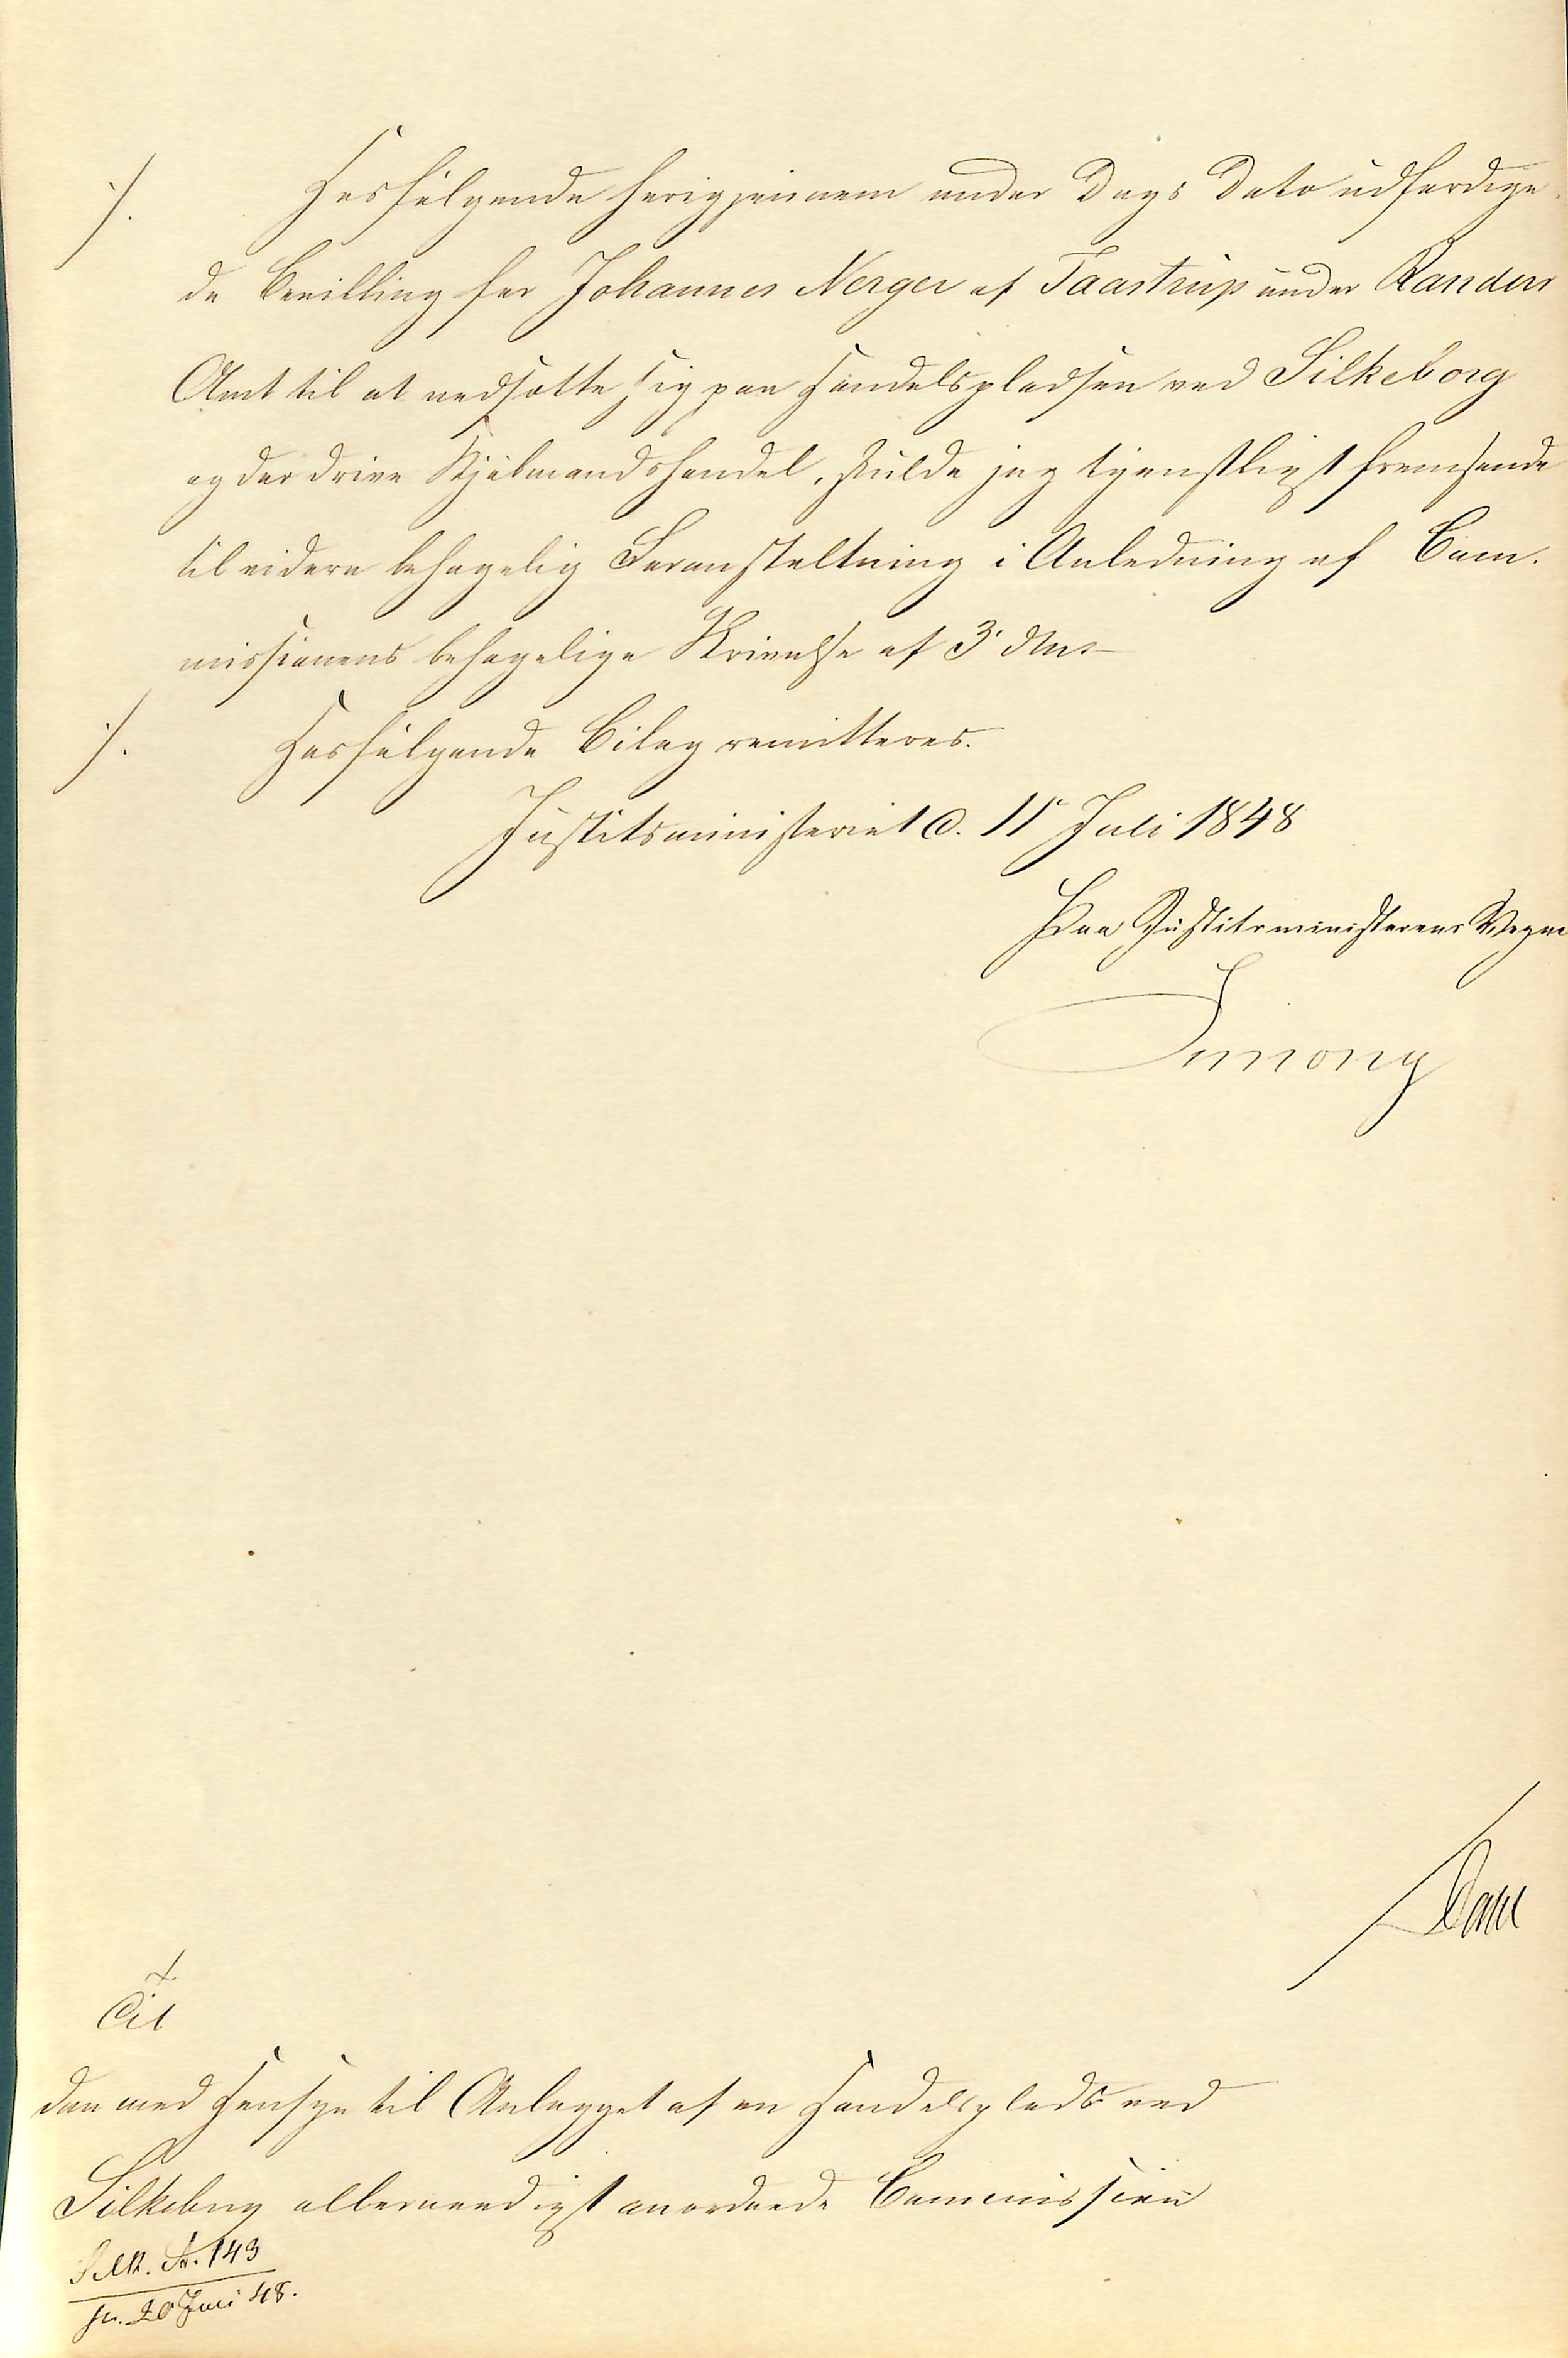 ./. Hosfølgende herigjennem under Dags Dato udfærdige-
de Bevilling for Johannes Nerger af Taastrup under Randers
Amt til at nedsætte sig paa Handelspladsen ved Silkeborg
og der drive Kjøbmandshandel, skulde jeg tjenstligst fremsende
til videre behagelig Foranstaltning i Anledning af Com-
missionens behagelige Skrivelse af 3' dns
./. Hosfølgende Bilag remitteres.
Justitsministeriet d. 11' Juli 1848
Paa Justitsministerens Vegne
Til
den med Hensyn til Anlægget af en Handelsplads ved
Silkeborg allernaadigst anordnede Commission
Silk. No. 143
20 Juli 48.